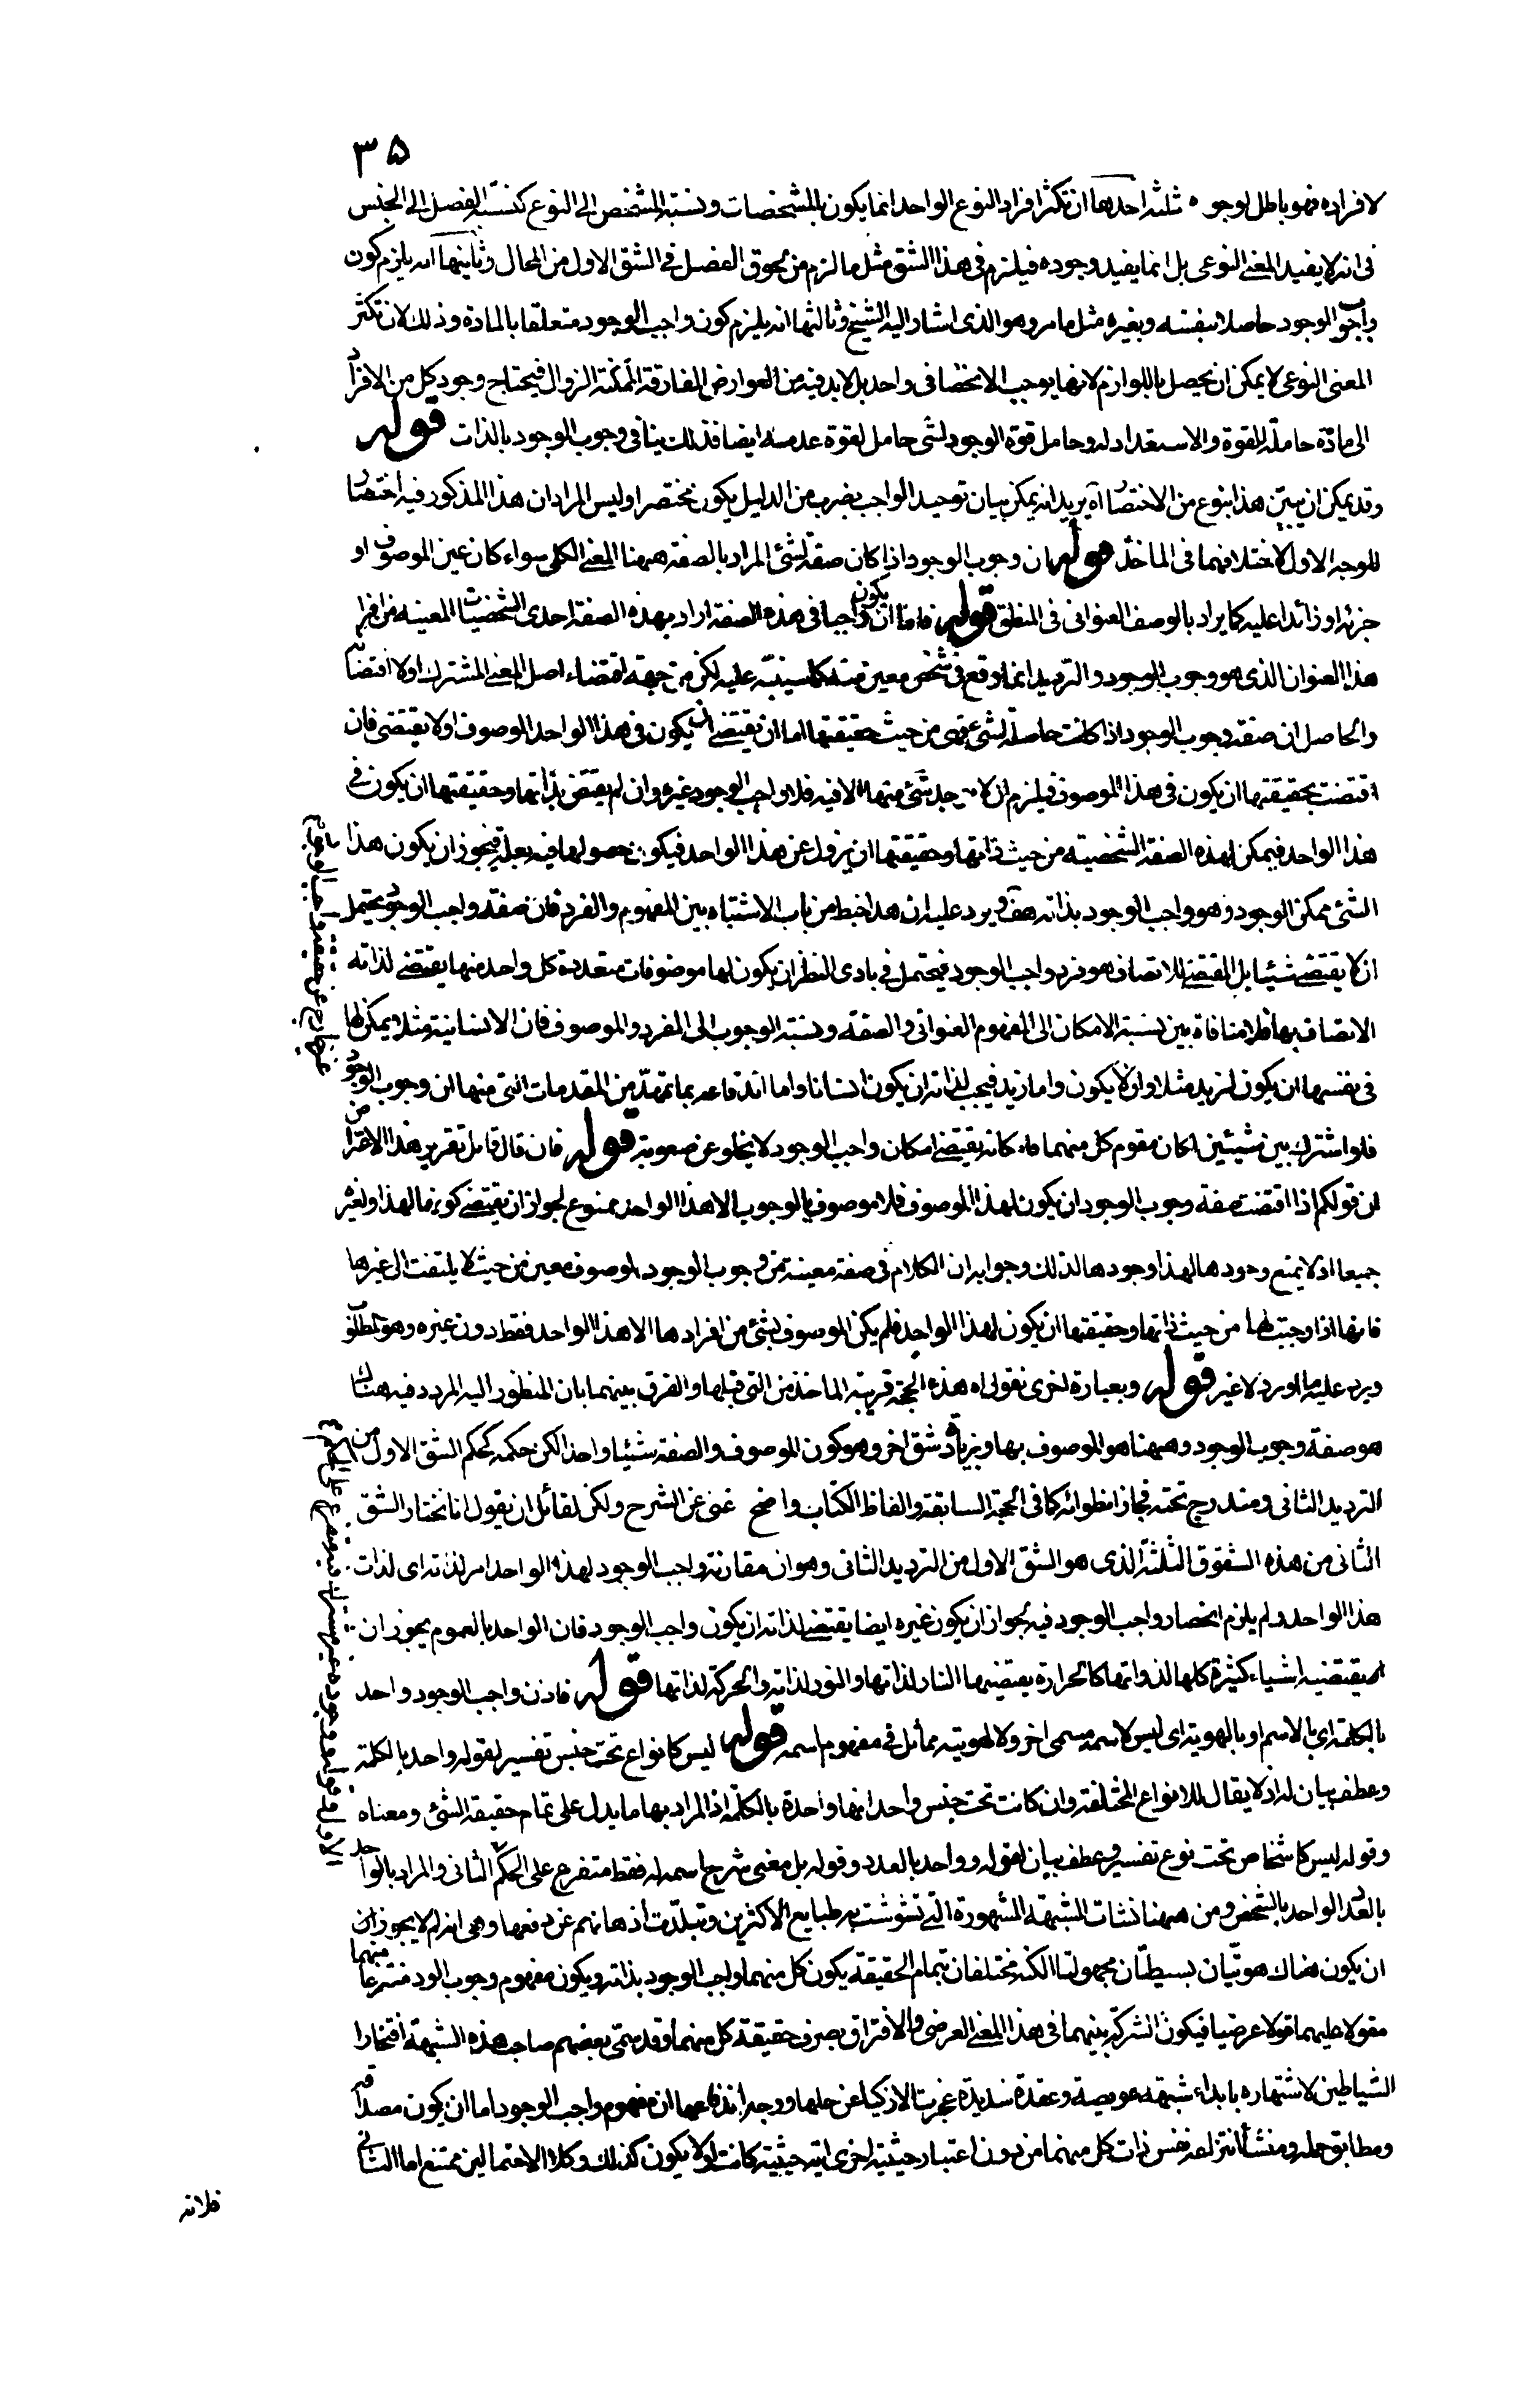 ٣٥
لافراده فهو باطل لوجوه ثلثه احدها ان تكثر افراد النوع الواحد انما يكون بالمشخصات ونسبة المشخص الى النوع كنسبة الفصل الى الجنس
فى انه لا يفيد المعنى النوعى بل انما يفيد وجوده فيلزم فى هذا الشق مثل ما لزم من لحوق الفصل فى الشق الاول من المحال وثانيها انه يلزم كون
واجب الوجود حاصلا بنفسه وبغيره مثل ما مر وهو الذى اشار اليه الشيخ وثالثها انه يلزم كون واجب الوجود متعلقا بالمادة وذلك لان تكثر
المعنى النوعى لا يمكن ان يحصل باللوازم لانها يوجب الانحصار فى واحد بل لابد فيه من العوارض المفارقة الممكنة الزوال فيحتاج وجود كل من الافراد
الى مادة حاملة للقوة والاستعداد له وحامل قوة الوجود لشئ حامل لقوة عدمه ايضا فذلك ينافى وجوب الوجود بالذات قوله
وقد يمكن ان نبين هذا بنوع من الاختصار اه يريد انه يمكن بيان توحيد الواجب بضرب من الدليل يكون مختصرا وليس المراد ان هذا المذكور فيه اختصار
للوجه الاول لاختلافهما فى الماخذ قوله ان وجوب الوجود اذا كان صفة لشئ المراد بالصفة ههنا المعنى الكلى سواء كان عين الموصوف او
جزئه او زائدا عليه كما يراد بالوصف العنوانى فى المنطق قوله فاما ان يكون واجبا فى هذه الصفة اراد بهذه الصفة احدى الشخصيات المعينة من افراد
هذا العنوان الذى هو وجوب الوجود والترديد انما وقع فى شخص معين منه كما سينبه عليه لكن من جهة اقتضاء اصل المعنى المشترك او لا اقتضائه
والحاصل ان صفة وجوب الوجود اذا كانت حاصلة لشئ فهى من حيث حقيقتها اما ان يقتضى ان يكون فى هذا الواحد الموصوف او لا يقتضى فان
اقتضت بحقيقتها ان يكون فى هذا الموصوف فيلزم ان لا يوجد شئ منها الا فيه فلا واجب الوجود غيره وان لم يقتض بذاتها وحقيقتها ان يكون فى
هذا الواحد فيمكن لهذه الصفة الشخصية من حيث ذاتها وحقيقتها ان يزول عن هذا الواحد فيكون حصولها فيه بعلة فيجوز ان يكون هذا
الشئ ممكن الوجود وهو واجب الوجود بذاته هف ويرد عليه ان هذا خبط من باب الاشتباه بين المفهوم والفرد فان صفة واجب الوجود يحتمل
ان لا يقتضى شيئا بل المقتضى للاتصاف هو فرد واجب الوجود فيحتمل فى بادى النظر ان يكون لها موصوفات متعددة كل واحد منها يقتضى لذاته
الاتصاف بها فلا منافاة بين نسبة الامكان الى المفهوم العنوانى والصفة ونسبة الوجوب الى الفرد والموصوف فان الانسانية مثلا يمكن لها
فى نفسها ان يكون لزيد مثلا وان لا يكون واما زيد فيجب لذاته ان يكون انسانا واما اندفاعه بما تمهد من المقدمات التى منها ان وجوب الوجود
فلو اشترك بين شيئين لكان مقوم كل منهما فامكانه يقتضى امكان واجب الوجود لا يخلو عن صعوبة قوله فان قال قائل تقرير هذا الاعتراض
ان قولكم اذا اقتضت صفة وجوب الوجود ان يكون لهذا الموصوف فلا موصوف بالوجوب الا هذا الواحد ممنوع لجواز ان يقتضى كونها لهذا ولغيره
جميعا اذ لا يمنع وجودها لهذا وجودها لذلك وجوابه ان الكلام فى صفة معينة من وجوب الوجود لموصوف معين من حيث لا يلتفت الى غيرها
فانها اذا وجبت لها من حيث ذاتها وحقيقتها ان يكون لهذا الواحد فلم يكن الموصوف بشئ من افرادها الا هذا الواحد فقط دون غيره وهو المطلوب
ويرد عليه ما اورد لا غير قوله وبعبارة اخرى نقول اه هذه الحجة قريبة الماخذ من التى قبلها والفرق بينهما بان المنظور اليه المردد فيه هناك
هو صفة وجوب الوجود وههنا هو الموصوف بها وبزيادة شق اخر وهو كون الموصوف والصفة شيئا واحدا لكن حكمه كحكم الشق الاول من
الترديد الثانى ومندرج تحته فجاز انطوائه كما فى الحجة السابقة والفاظ الكتاب واضح غنى عن الشرح ولكن لقائل ان يقول انا نختار الشق
الثانى من هذه الشقوق الثلثة الذى هو الشق الاول من الترديد الثانى وهو ان مقارنة واجب الوجود لهذا الواحد امر لذاته اى لذات
هذا الواحد ولم يلزم انحصار واجب الوجود فيه لجواز ان يكون غيره ايضا يقتضى لذاته ان يكون واجب الوجود فان الواحد بالعموم يجوز ان
يقتضيه اشياء كثيرة كلها لذواتها كالحرارة يقتضيها النار لذاتها والنور لذاته والحركة لذاتها قوله فاذن واجب الوجود واحد
بالكلمة اى بالاسم او بالهوية اى ليس لاسمه مسمى اخر ولا لهويته مماثل فى مفهوم اسمه قوله ليس كانواع تحت جنس تفسير لقوله واحد بالكلمة
وعطف بيان له اذ لا يقال للانواع المختلفة وان كانت تحت جنس واحد انها واحدة بالكلمة اذ المراد بها ما يدل على تمام حقيقة الشئ ومعناه
وقوله ليس كاشخاص تحت نوع تفسير وعطف بيان لقوله وواحد بالعدد وقوله بل معنى شرح اسمه له فقط متفرع على الحكم الثانى والمراد بالواحد
بالعدد الواحد بالشخص ومن ههنا نشات الشبهة المشهورة التى تشوشت به طبايع الاكثرين وتبلدت اذهانهم عن دفعها وهى انه لم لا يجوز ان
ان يكون هناك هويتان بسيطتان مجهولتا الكنه مختلفتان بتمام الحقيقة يكون كل منهما واجب الوجود بذاته ويكون مفهوم وجوب الوجود منتزعا منهما
مقولا عليهما قولا عرضيا فيكون الشركة بينهما فى هذا المعنى العرضى والافتراق بصرف حقيقة كل منهما وقد سمى بعضهم صاحب هذه الشبهة افتخار
الشياطين لاشتهاره بابداء شبهة عويصة وعقدة شديدة عجزت الاذكياء عن حلها ووجه اندفاعها ان مفهوم واجب الوجود اما ان يكون مصداقه
ومطابق حمله ومنشأ انتزاعه نفس ذات كل منهما من دون اعتبار حيثية اخرى اية حيثية كانت او لا يكون كذلك وكلا الاحتمالين ممتنع اما الثانى
فلانه